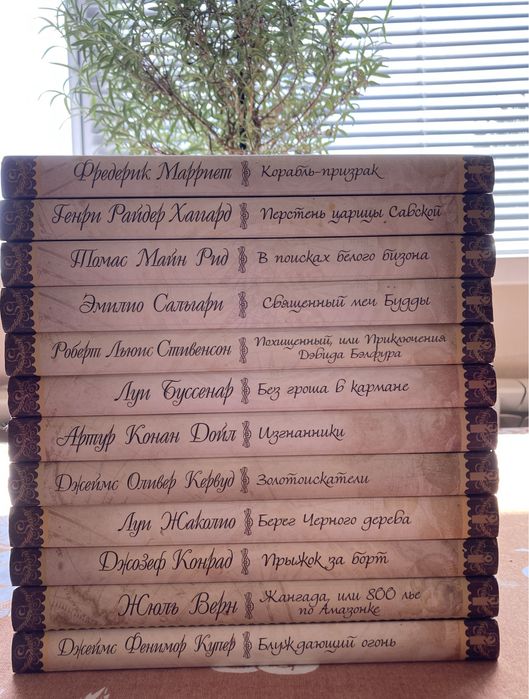 Фредерик Марриет Корабль-призрак
Генри Райдер Хаггард Перстень царицы Савской
Томас Майн Рид В поисках белого бизона
Эмилио Сальгари Священный меч Будды
Роберт Льюис Стивенсон Похищенный, или Приключения
Дэвида Бэлфура
Луи Буссенар Без гроша в кармане
Артур Конан Дойл Изгнанники
Джеймс Оливер Кервуд Золотоискатели
Луи Жаколио Берег Черного дерева
Джозеф Конрад Прыжок за борт
Жюль Верн Жангада, или 800 лье
по Амазонке
Джеймс Фенимор Купер Блуждающий огонь